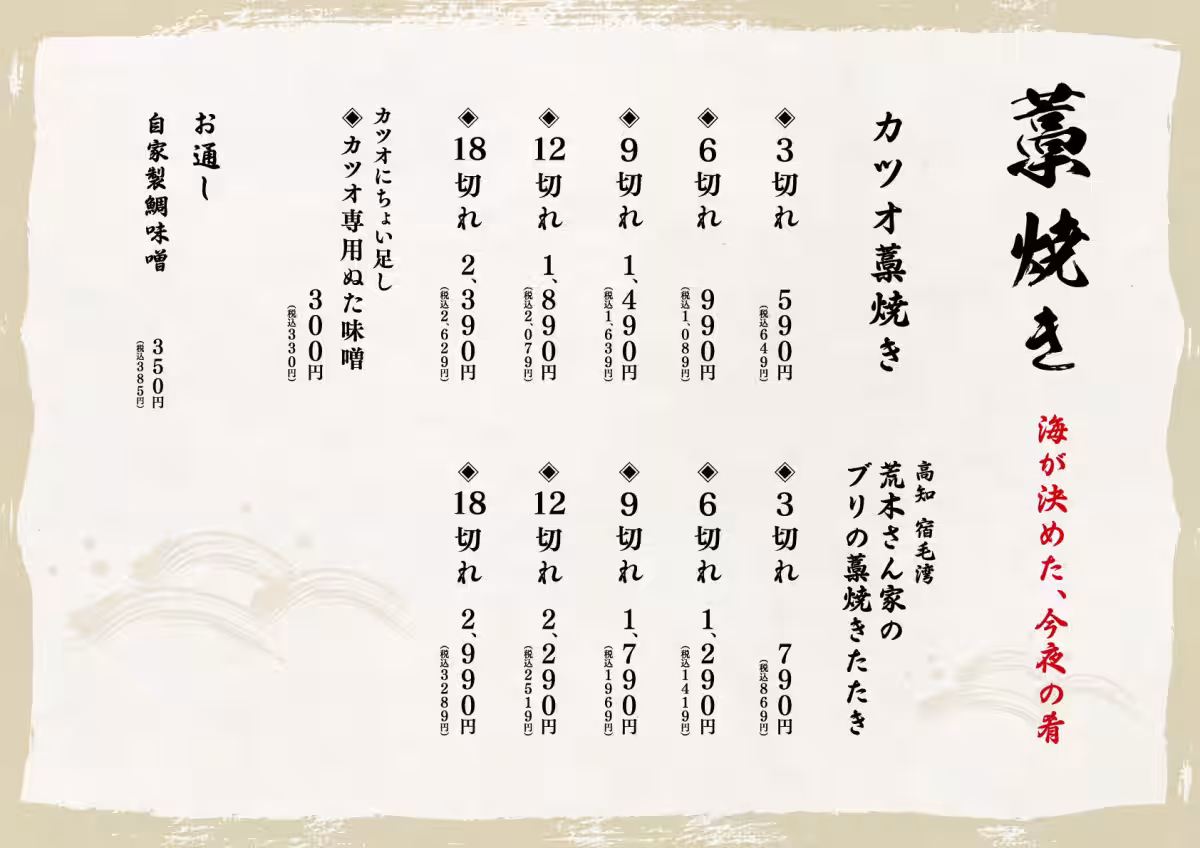 藁焼き
海が決めた、今夜の肴
カツオ藁焼き
◈3切れ 590円
(税込649円)
◈6切れ 990円
(税込1,089円)
◈9切れ 1,490円
(税込1,639円)
◈12切れ 1,890円
(税込2,079円)
◈18切れ 2,390円
(税込2,629円)
カツオにちょい足し
◈カツオ専用ぬた味噌
300円
(税込330円)
高知 宿毛湾
荒木さん家の
ブリの藁焼きたたき
◈3切れ 790円
(税込869円)
◈6切れ 1,290円
(税込1419円)
◈9切れ 1,790円
(税込1969円)
◈12切れ 2,290円
(税込2519円)
◈18切れ 2,990円
(税込3289円)
お通し
自家製鯛味噌 350円
(税込385円)